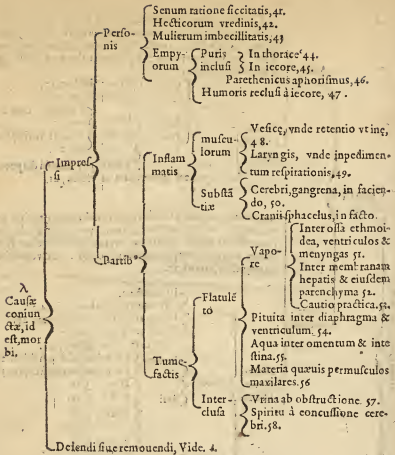 Senum ratione siccitatis, 41.
Hecticorum vredinis, 42.
Perso-
nis
Mulierum imbecillitatis, 43
Empy-
orum
Puris
inclusi
In thorace 44.
In iecore, 45.
Parethenicus aphorismus, 46.
Humoris reclusi à iecore, 47.
Impres-
si
Inflam
matis
muscu-
lorum
Vesicę, vnde retentio vrinę,
48.
Laryngis, vnde inpedimen-
tum respirationis, 49.
Substā
tiæ
Cerebri, gangrena, in facien-
do, 50.
Cranii sphacelus, in facto.
Partibꝰ
λ
Causæ
coniun
ctæ, id
est, mor
bi.
Tume-
factis
Flatulē
to
Vapo-
re
Inter ossa ethmoi-
dea, ventriculos &
menyngas 51.
Inter membranam
hepatis & eiusdem
parenchyma 52.
Cautio practica. 53.
Pituita inter diaphragma &
ventriculum. 54.
Aqua inter omentum & inte
stina. 55.
Materia quæuis per musculos
maxilares. 56
Inter-
clusa
Vrina ab obstructione. 57.
Spiritu à concussione cere-
bri. 58.
Defendi siue remouendi, Vide. 4.